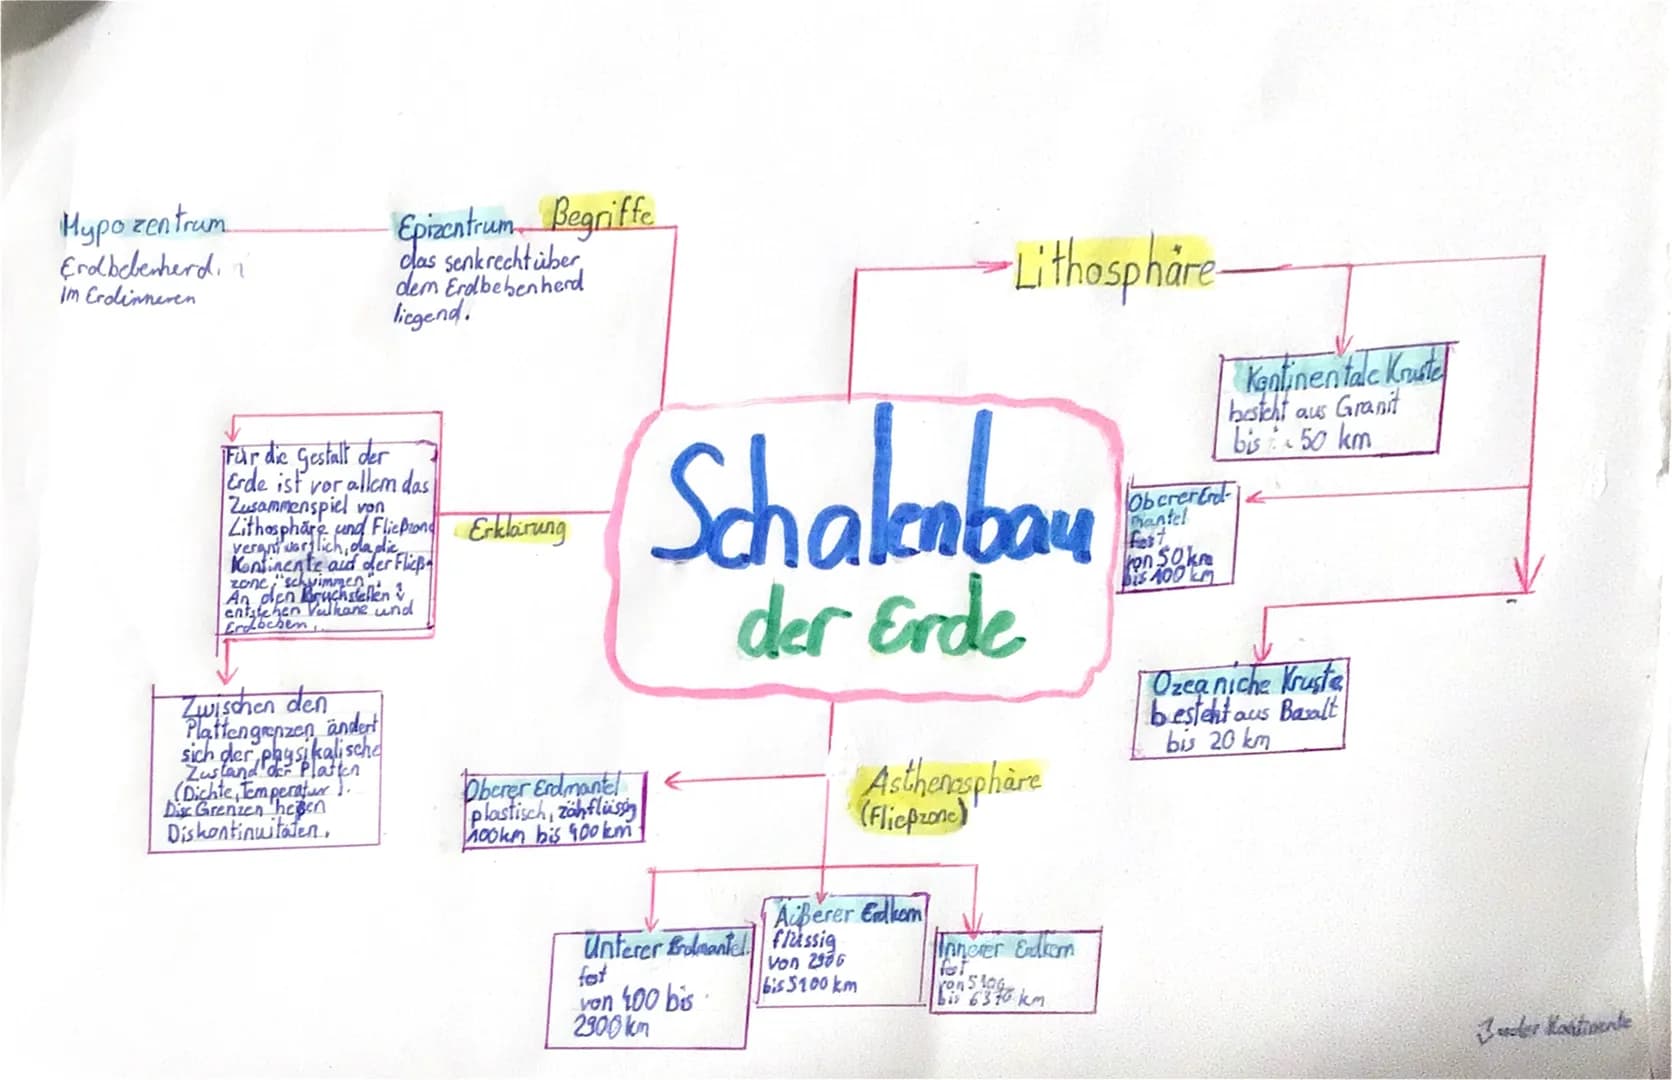 Hypozentrum
Erdbebenherd
im Erdinneren
Epizentrum
das senkrecht über
dem Erdbebenherd
liegend.
Begriffe
Lithosphäre
Kontinentale Kruste
besteht aus Granit
bis 50 km
Oberer Erd-
mantel
fest
von 50 km
bis 100 km
Ozeaniche Kruste
besteht aus Basalt
bis 20 km
Schalenbau
der Erde
Erklärung
Für die Gestalt der
Erde ist vor allem das
Zusammenspiel von
Lithosphäre und Fließzone
verantwortlich, da die
Kontinente auf der Fließ-
zone "schwimmen".
An den Bruchstellen
entstehen Vulkane und
Erdbeben.
Zwischen den
Plattengrenzen ändert
sich der physikalische
Zustand der Platten
(Dichte, Temperatur).
Die Grenzen heißen
Diskontinuitäten.
Asthenosphäre
(Fließzone)
Oberer Erdmantel
plastisch, zähflüssig
100km bis 400km
Unterer Erdmantel
fest
von 400 bis
2900 km
Äußerer Erdkern
flüssig
von 2900
bis 5100 km
Innerer Erdkern
fest
von 5100
bis 6370 km
der Kontinente